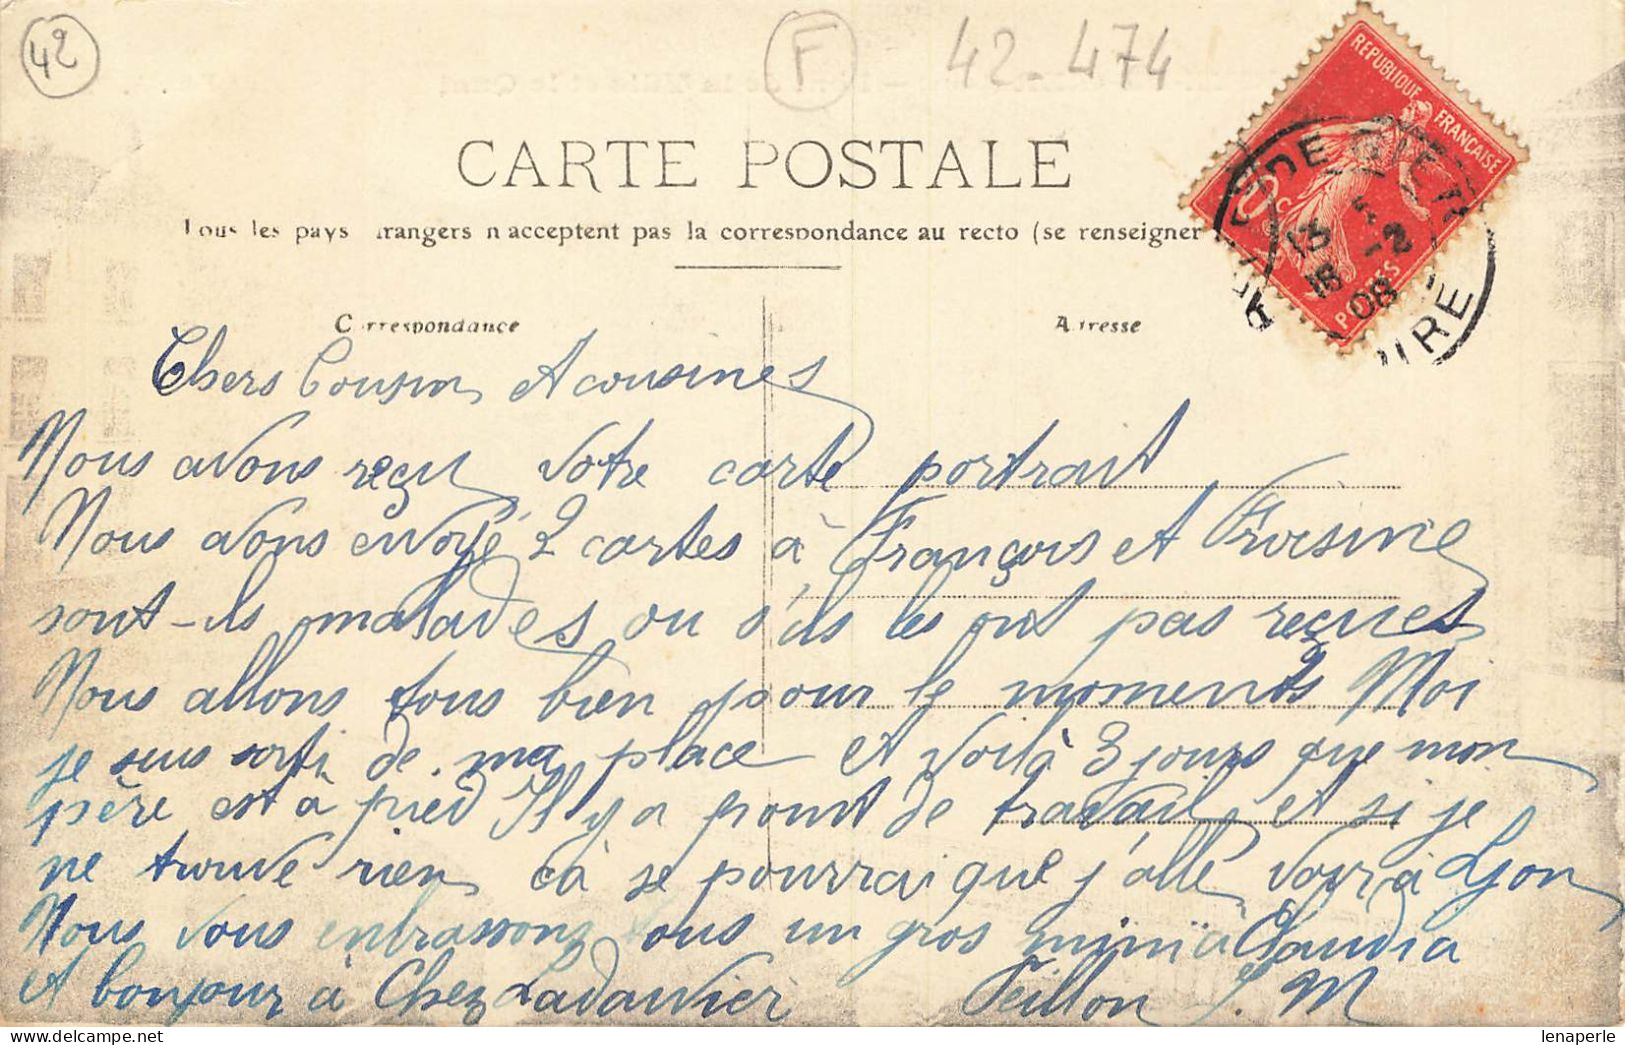 42
F
42-474
CARTE POSTALE
Tous les pays étrangers n'acceptent pas la correspondance au recto (se renseigner
REPUBLIQUE FRANÇAISE
10 c
POSTES
DE GIER
13
18 -2
08
LOIRE
Correspondance
Adresse
Chers Cousin Et cousines
Nous avons reçu votre carte portrait
Nous avons envoyé 2 cartes à François et Froisine
sont-ils malades ou s'ils les ont pas reçues
Nous allons tous bien pour le moments Moi
je suis sorti de ma place et voilà 3 jours que mon
père est à pied Il y a point de travail et si je
ne trouve rien cà se pourrai que j'alle voir à Lyon
Nous vous enbrassons tous un gros mimi à Claudia
Et bonjour à Chez Ladavier Teillon J. M
lenaperle